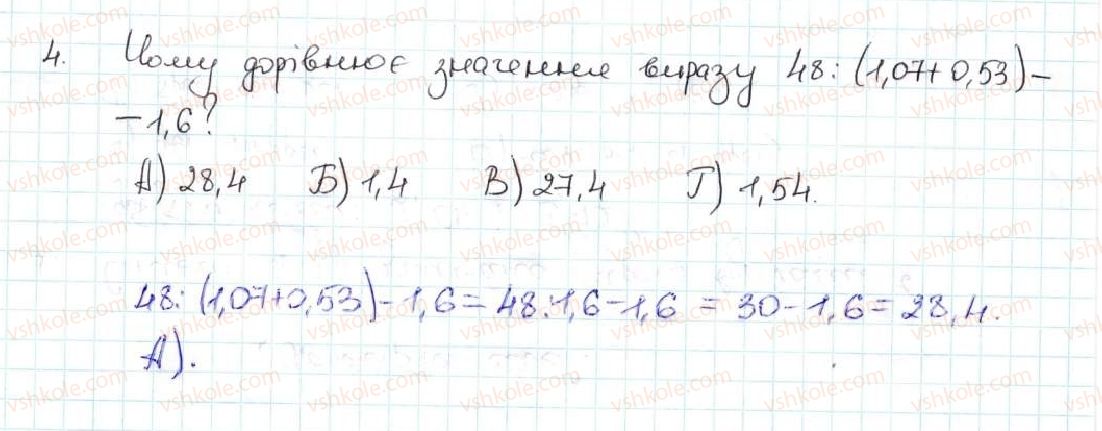 4. Чому дорівнює значення виразу 48:(1,07+0,53)-
-1,6?
А) 28,4 Б) 1,4 В) 27,4 Г) 1,54.
48:(1,07+0,53)-1,6=48:1,6-1,6=30-1,6=28,4.
А).